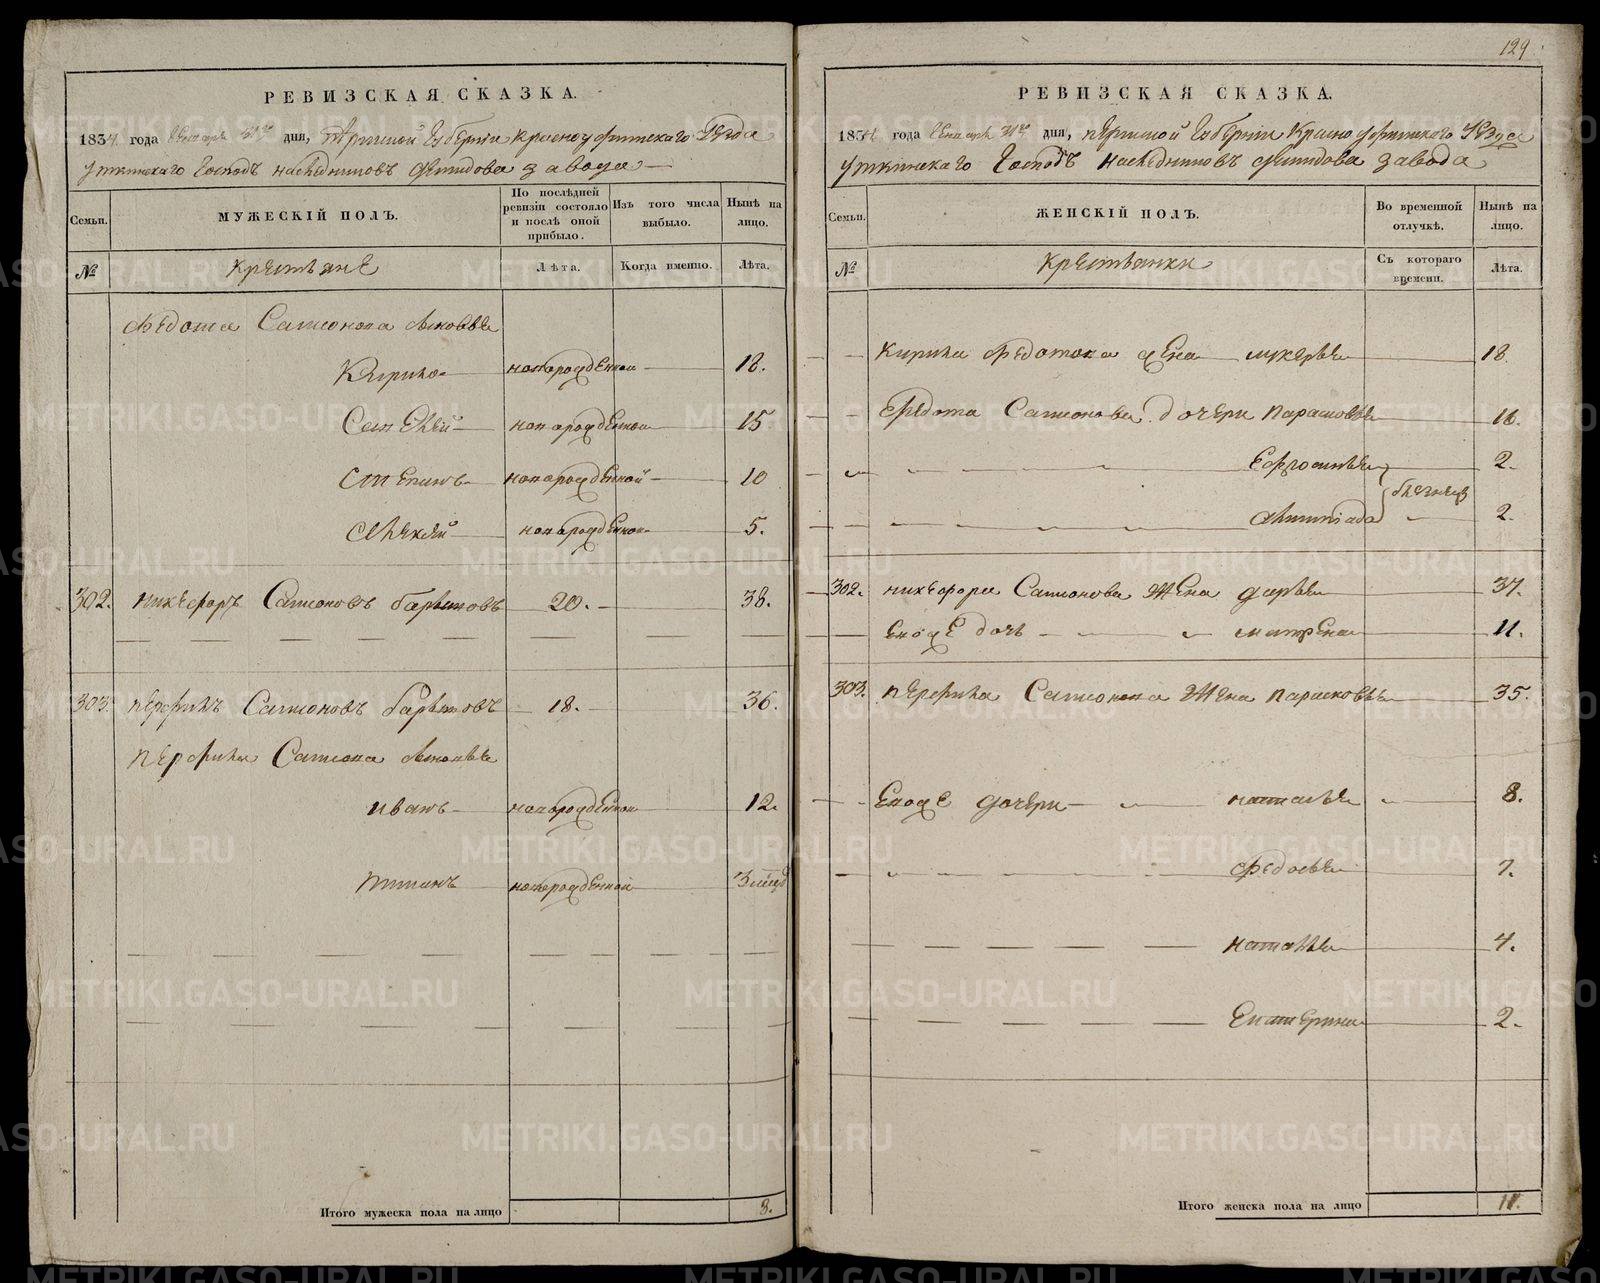 129
РЕВИЗСКАЯ СКАЗКА.
1834 года Генваря 31го дня, Пермской Губерніи Красноуфимскаго Уезда
Уткинскаго Господъ наследниковъ Демидова завода
Семьи.
МУЖЕСКІЙ ПОЛЪ.
По послѣдней ревизіи состояло и послѣ оной прибыло.
Изъ того числа выбыло.
Нынѣ на лицо.
№
Крестьяне
Лѣта.
Когда именно.
Лѣта.
Федота Самсонова сыновья
Кирило новорожденной 18.
Савелей новорожденной 15
Степанъ новорожденной 10
новорожденной 5.
302. Никефоръ Самсоновъ 20. 38.
303. Перфилъ Самсоновъ 18. 36.
Перфила Самсонова сыновья
Иванъ новорожденной 12.
новорожденной
Итого мужеска пола на лицо 8.
РЕВИЗСКАЯ СКАЗКА.
1834 года Генваря 31го дня, Пермской Губерніи Красноуфимскаго Уезда
Уткинскаго Господъ наследниковъ Демидова завода
Семьи.
ЖЕНСКІЙ ПОЛЪ.
Во временной отлучкѣ.
Нынѣ на лицо.
№
Крестьянки
Съ котораго времени.
Лѣта.
Кирила Федотова жена Лукерья 18
Федота Самсонова дочери Парасковья 16.
Ефросинья 2.
близнецы
2.
302. Никефора Самсонова жена Дарья 37.
Ево же дочь Матрена 11.
303. Перфила Самсонова жена Парасковья 35.
Ево же дочери Наталья 8.
Федосья 7.
Наталья 4.
Екатерина 2.
Итого женска пола на лицо 11.
METRIKI.GASO-URAL.RU